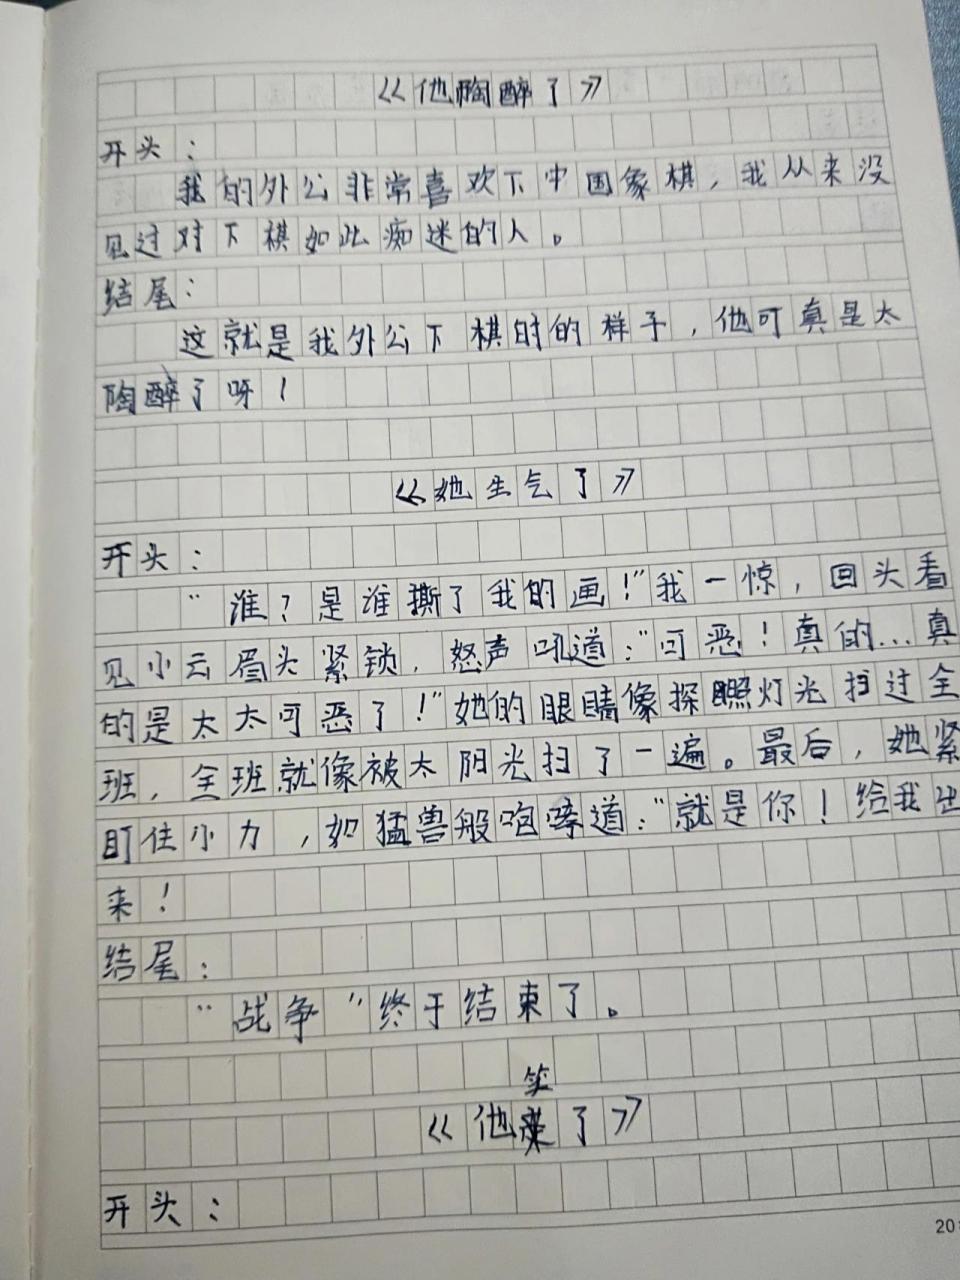 《他陶醉了》
开头：
我的外公非常喜欢下中国象棋，我从来没
见过对下棋如此痴迷的人。
结尾：
这就是我外公下棋时的样子，他可真是太
陶醉了呀！
《她生气了》
开头：
“谁？是谁撕了我的画！”我一惊，回头看
见小云眉头紧锁，怒声吼道：“可恶！真的...真
的是太太可恶了！”她的眼睛像探照灯光扫过全
班，全班就像被太阳光扫了一遍。最后，她紧
盯住小力，如猛兽般咆哮道：“就是你！给我出
来！
结尾：
“战争”终于结束了。
笑
《他了》
开头：
20